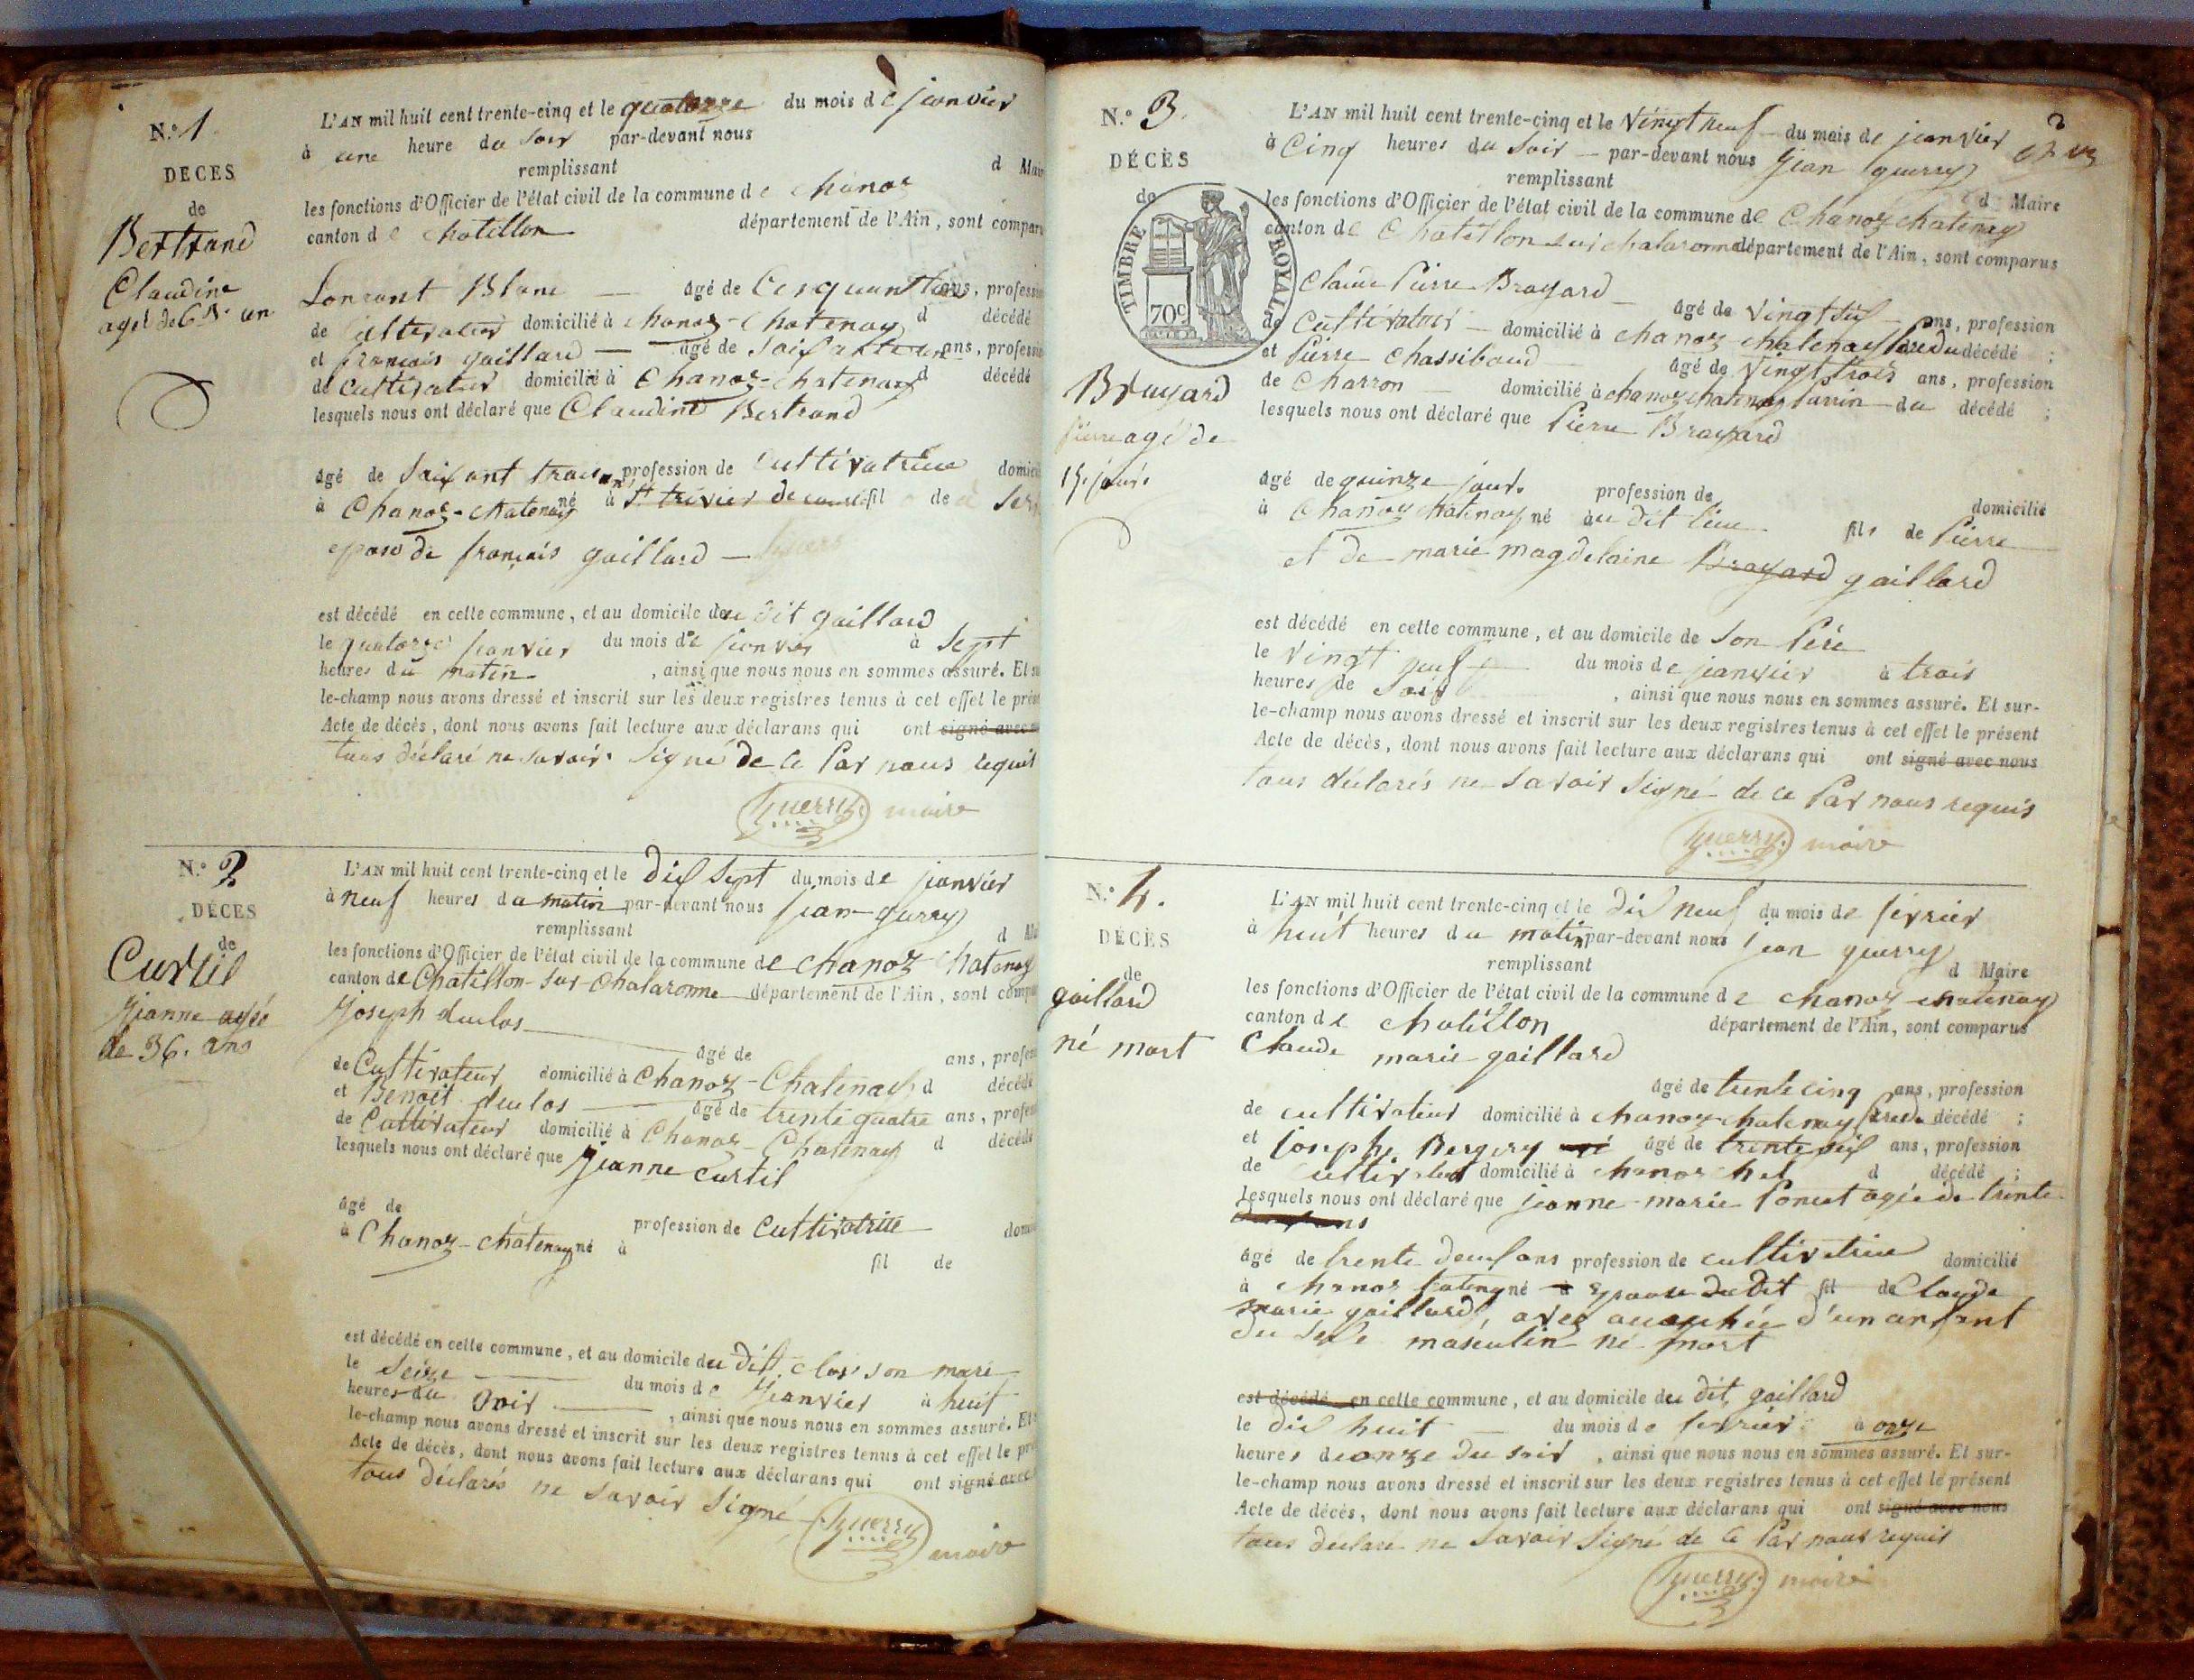 N.º 1.
DÉCÈS
de
Bertrand
Claudine
L'AN mil huit cent trente-cinq et le quatorze du mois de janvier
à une heure du soir par-devant nous
remplissant d Mai
les fonctions d'Officier de l'état civil de la commune de chanoz
canton de chatillon département de l'Ain, sont compar
Blanc — âgé de ans, profess
de cultivateur domicilié à chanoz-chatenay d décédé
et françois gaillard — âgé de ans, profess
de cultivateur domicilié à Chanoz-chatenay d décédé
lesquels nous ont déclaré que Claudine Bertrand
âgé de soixant trois ans profession de cultivatrice domici
à Chanoz-chatenay né à St trivier de fil de
epouse de françois gaillard —
est décédé en cette commune, et au domicile du dit gaillard
le quatorze janvier du mois de janvier à sept
heures du matin , ainsi que nous nous en sommes assuré. Et su
le-champ nous avons dressé et inscrit sur les deux registres tenus à cet effet le prés
Acte de décès, dont nous avons fait lecture aux déclarans qui ont signé avec
tous déclaré ne savoir signé de ce par nous requit
Guerry maire
N.º 2
DÉCÈS
de
Curtil
Jeanne agée
de 36. ans
L'AN mil huit cent trente-cinq et le dix sept du mois de janvier
à neuf heures du matin par-devant nous jean guerry
remplissant d Ma
les fonctions d'Officier de l'état civil de la commune de chanoz chatenay
canton de Chatillon-sur-chalaronne département de l'Ain, sont compar
Joseph duclos
âgé de ans, profess
de Cultivateur domicilié à Chanoz-Chatenay d décédé
et Benoit duclos — âgé de trente quatre ans, profess
de Cultivateur domicilié à Chanoz-Chatenay d décédé
lesquels nous ont déclaré que Jeanne curtil
âgé de profession de cultivatrice domic
à Chanoz-chatenay né à fil de
est décédé en cette commune, et au domicile du dit clos son mari
le seize du mois de Janvier à huit
heures du soir , ainsi que nous nous en sommes assuré. Et
le-champ nous avons dressé et inscrit sur les deux registres tenus à cet effet le pré
Acte de décès, dont nous avons fait lecture aux déclarans qui ont signé avec
tous déclarés ne savoir signé
Guerry maire
2
N.º 3.
DÉCÈS
de
TIMBRE ROYAL
70c
Brayard
Pierre agé de
15 jours
L'AN mil huit cent trente-cinq et le vingt neuf du mois de janvier
à Cinq heures du soir — par-devant nous jean guerry
remplissant d Maire
les fonctions d'Officier de l'état civil de la commune de Chanoz chatenay
canton de Chatillon sur chalaronne département de l'Ain, sont comparus
Claude Pierre Brayard
âgé de ans, profession
de Cultivateur — domicilié à chanoz chatenay Père du décédé ;
et Pierre Chassiboud âgé de vingt trois ans, profession
de Charron domicilié à chanoz chatenay parrin du décédé ;
lesquels nous ont déclaré que Pierre Brayard
âgé de quinze jours profession de domicilié
à Chanoz chatenay né au dit lieu fils de Pierre
et de marie magdelaine Brayard gaillard
est décédé en cette commune, et au domicile de son Père
le vingt neuf du mois de janvier à trois
heures de soir , ainsi que nous nous en sommes assuré. Et sur-
le-champ nous avons dressé et inscrit sur les deux registres tenus à cet effet le présent
Acte de décès, dont nous avons fait lecture aux déclarans qui ont signé avec nous
tous déclarés ne savoir signé de ce par nous requis
Guerry maire
N.º 4.
DÉCÈS
de
gaillard
né mort
L'AN mil huit cent trente-cinq et le dix neuf du mois de février
à huit heures du matin par-devant nous jean guerry
remplissant d Maire
les fonctions d'Officier de l'état civil de la commune de chanoz chatenay
canton de chatillon département de l'Ain, sont comparus
Claude marie gaillard
âgé de trente cinq ans, profession
de cultivateur domicilié à chanoz-chatenay Père du décédé ;
et joseph Bergery âgé de trente six ans, profession
de domicilié à chanoz chat d décédé ;
lesquels nous ont déclaré que jeanne-marie Poncet agée de trente
âgé de trente deux ans profession de cultivatrice domicilié
à chanoz né à Epouse du dit fil de Claude
marie gaillard, avec accouchée d'un anfant
du sexe masculin né mort
est décédé en cette commune, et au domicile du dit gaillard
le dix huit du mois de fevrier à onze
heures de onze du soir , ainsi que nous nous en sommes assuré. Et sur-
le-champ nous avons dressé et inscrit sur les deux registres tenus à cet effet le présent
Acte de décès, dont nous avons fait lecture aux déclarans qui ont signé avec nous
tous déclaré ne savoir signé de ce par nous requis
Guerry maire